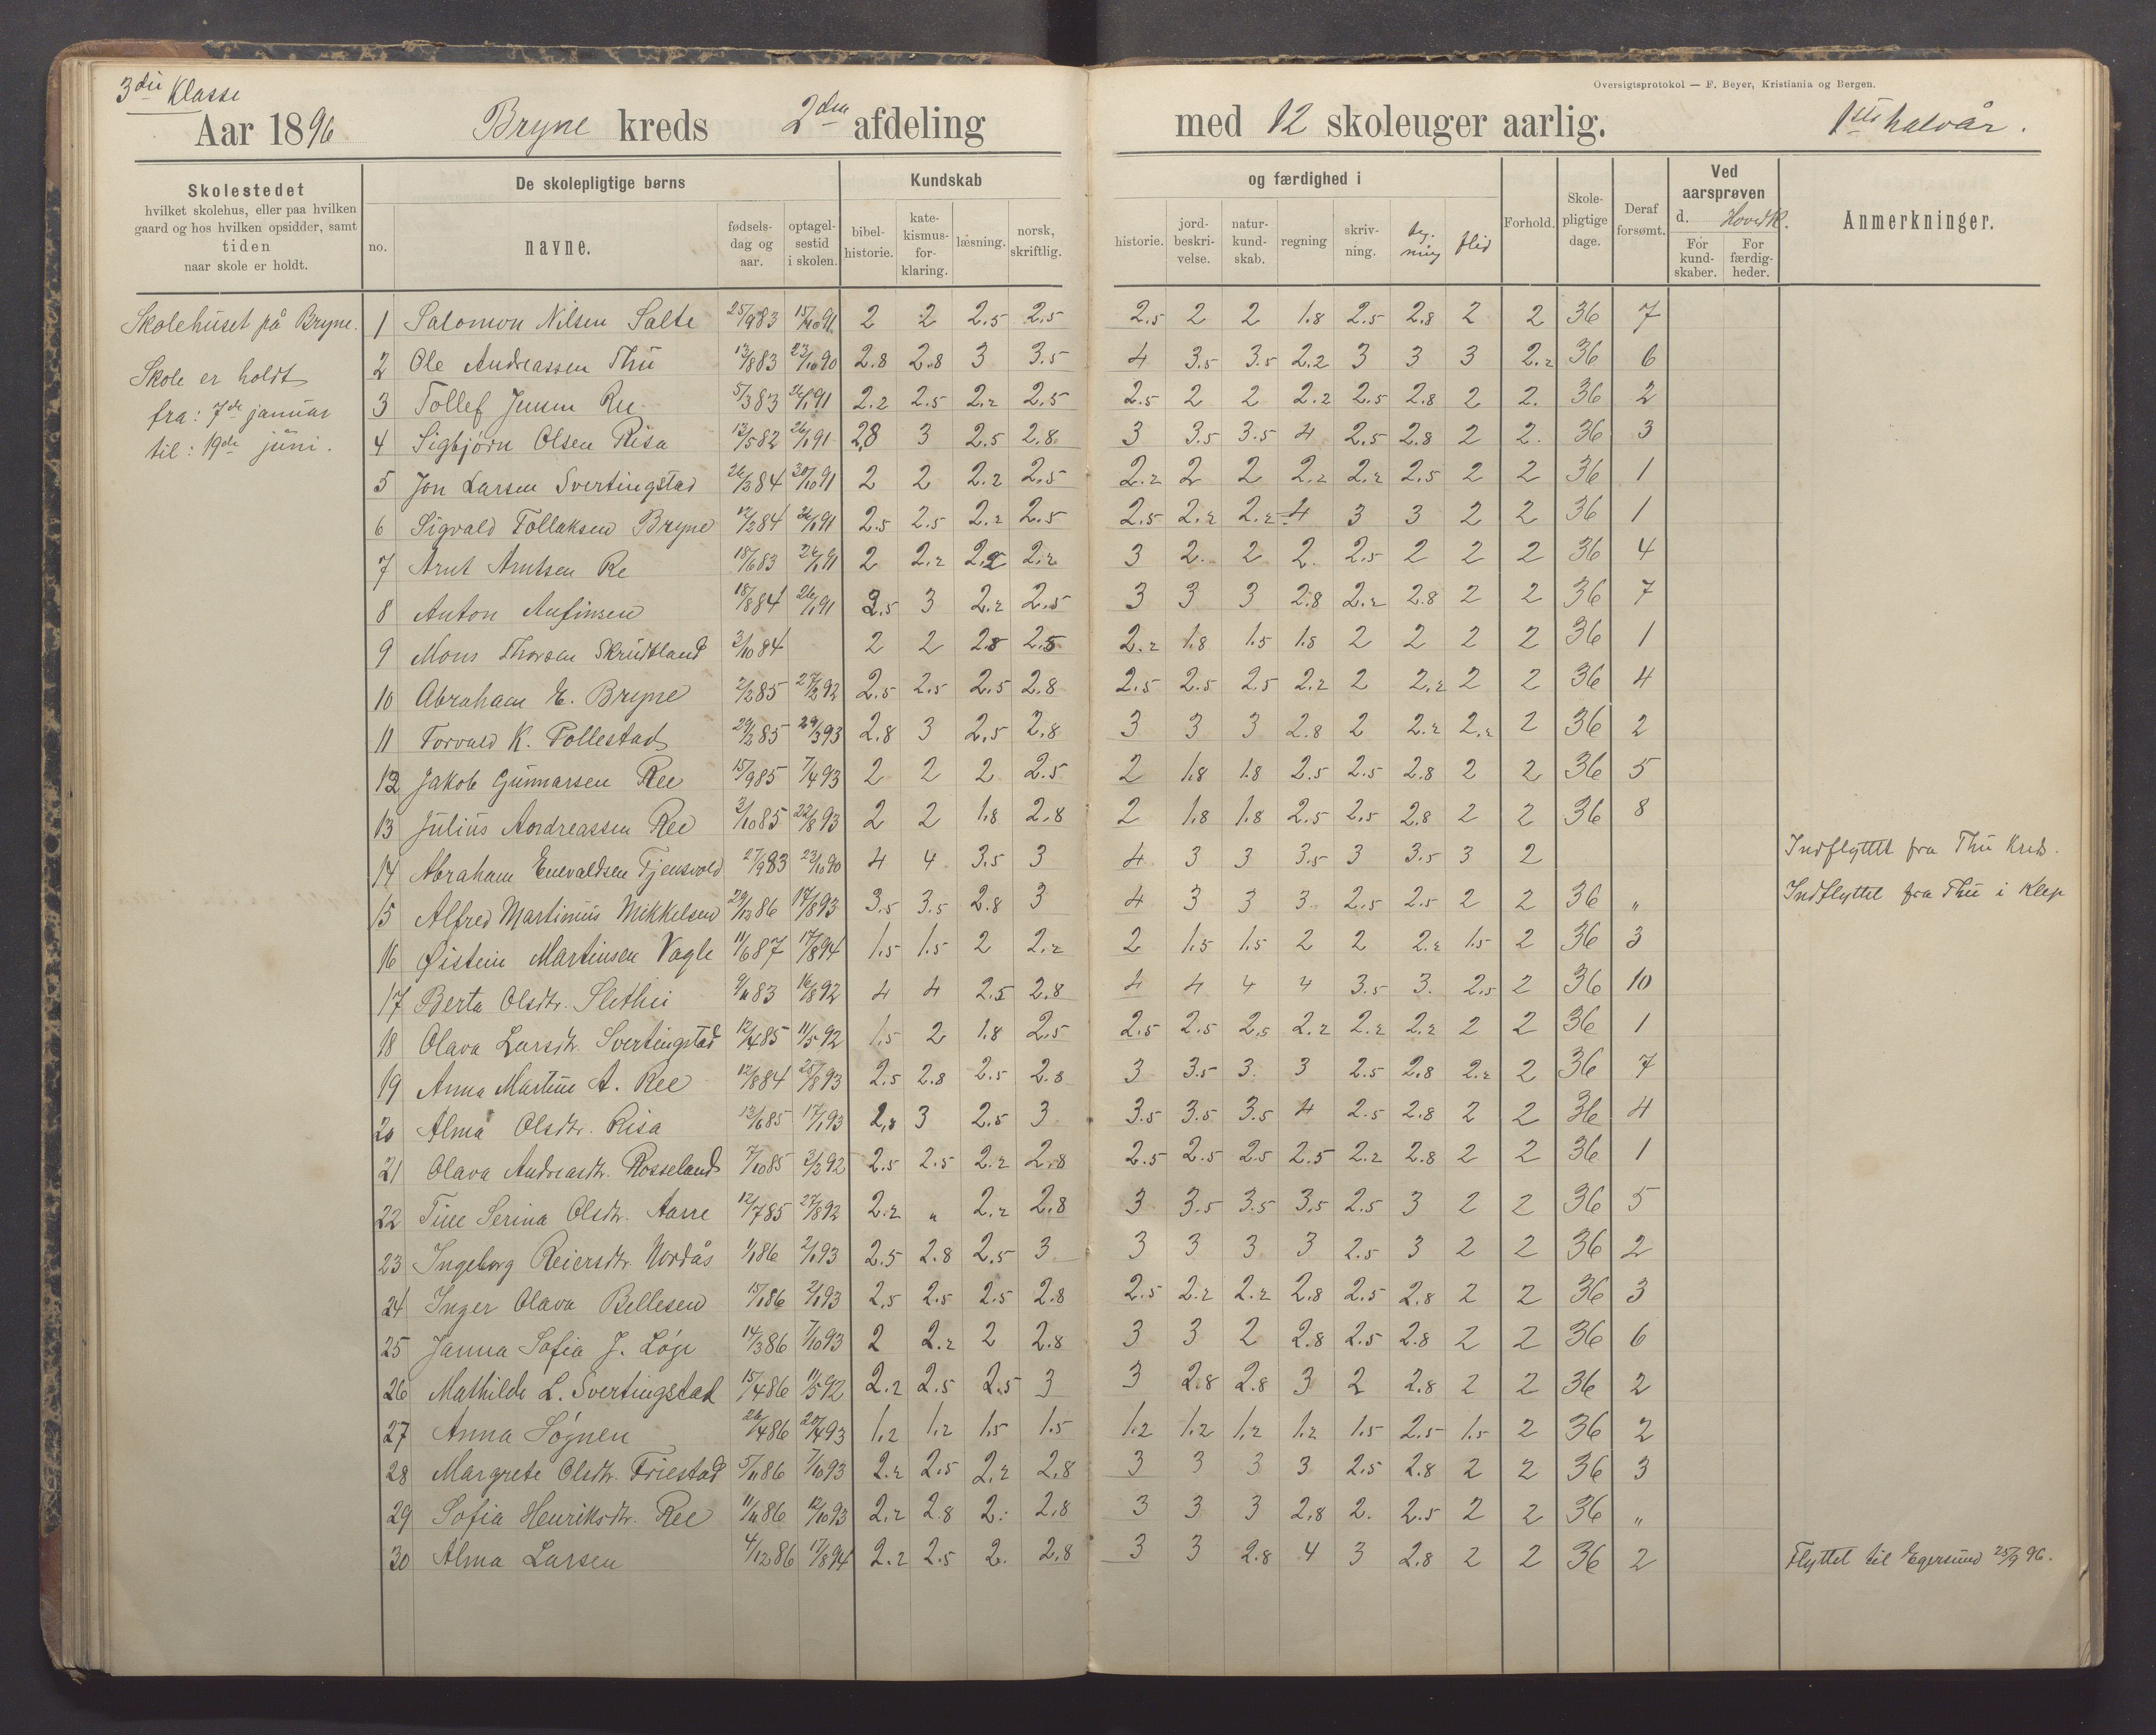 3die Klasse
Oversigtsprotokol — F. Beyer, Kristiania og Bergen.
Aar 1896 Bryne kreds 2den afdeling med 12 skoleuger aarlig. 1ste halvår.
Skolestedet
hvilket skolehus, eller paa hvilken
gaard og hos hvilken opsidder, samt
tiden
naar skole er holdt.
De skolepligtige børns
no. navne. fødsels-dag og aar. optagel-sestid i skolen.
Kundskab
bibel-historie. kate-kismus-for-klaring. læsning. norsk, skriftlig.
og færdighed i
historie. jord-beskri-velse. natur-kund-skab. regning skriv-ning. teg-ning flid
Forhold. Skole-pligtige dage. Deraf forsømt.
Ved aarsprøven d. Hovedk.
For kund-skaber. For færdig-heder.
Anmerkninger.
Skolehuset på Bryne.
Skole er holdt
fra: 7de januar
til: 19de juni.
1 Salomon Nilsen Salte 25/9 83 15/10 91 2 2 2.5 2.5 2.5 2 2 1.8 2.5 2.8 2 2 36 7
2 Ole Andreassen Thu 13/8 83 23/10 90 2.8 2.8 3 3.5 4 3.5 3.5 2.2 3 3 3 2.2 36 6
3 Tollef Jensen Ree 5/3 83 26/1 91 2.2 2.5 2.2 2.5 2.5 2 2 2.2 2.5 2.8 2 2. 36 2
4 Sigbjörn Olsen Risa 13/5 82 26/1 91 2.8 3 2.5 2.8 3 3.5 3.5 4 2.5 2.8 2 2. 36 3
5 Jon Larsen Svertingstad 26/3 84 30/10 91 2 2 2.2 2.5 2.2 2 2 2.2 2.2 2.5 2 2 36 1
6 Sigvald Tollaksen Bryne 12/2 84 26/1 91 2.5 2.5 2.2 2.5 2.5 2.2 2.2 4 3 3 2 2 36 1
7 Arnt Arntsen Re 18/6 83 26/1 91 2 2.2 2.2 2.2 3 2. 2 2. 2.5 2 2 2 36 4
8 Anton Anfinsen 18/8 84 26/1 91 2.5 3 2.2 2.5 3 3 3 2.8 2.2 2.8 2 2 36 7
9 Mons Thorsen Skrudland 3/10 84 2 2 2.8 2.5 2.2 1.8 1.5 1.8 2 2 2 2 36 1
10 Abraham E. Bryne 2/2 85 27/2 92 2.5 2.5 2.5 2.8 2.5 2.5 2.5 2.2 2 2.2 2 2 36 4
11 Torvald K. Tollestad 29/2 85 29/3 93 2.8 3 2.5 2.8 3 3 3 2.8 2 2.2 2.2 2 36 2
12 Jakob Gunnarsen Ree 15/9 85 7/4 93 2 2 2 2.5 2 1.8 1.8 2.5 2.5 2.8 2 2 36 5
13 Julius Andreassen Ree 3/10 85 22/8 93 2 2 1.8 2.8 2 1.8 1.8 2.5 2.5 2.8 2 2 36 8
14 Abraham Enevaldsen Tjensvold 27/9 83 23/10 90 4 4 3.5 3 4 3 3 3.5 3 3.5 3 2 Indflyttet fra Thu Kreds.
15 Alfred Martinius Mikkelsen 29/12 86 17/8 93 3.5 3.5 2.8 3 4 3 3 3 2.5 2.5 2 2 36 „ Indflyttet fra Thu i Klep
16 Øistein Martinsen Vagle 11/6 87 17/8 94 1.5 1.5 2 2.2 2 1.5 1.5 2 2 2.2 1.5 2 36 3
17 Berta Olsdtr. Slethei 9/11 83 16/8 92 4 4 2.5 2.8 4 4 4 4 3.5 3. 2.5 2 36 10
18 Olava Larsdtr. Svertingstad 12/4 85 11/5 92 1.5 2 1.8 2.5 2.5 2.5 2.5 2.2 2.2 2.2 2 2 36 1
19 Anna Martine A. Ree 12/8 84 25/8 93 2.5 2.8 2.5 2.8 3 3.5 3. 3 2.5 2.8 2.2 2 36 7
20 Alma Olsdtr. Risa 13/6 85 17/1 93 2.8 3 2.5 3 3.5 3.5 3.5 4 2.5 2.8 2 2 36 4
21 Olava Andreasdtr. Rosseland 7/10 85 3/2 92 2.5 2.5 2.2 2.8 2.5 2.5 2.5 2.5 2.2 2.8 2 2 36 1
22 Tine Serina Olsdtr. Aarre 12/7 85 27/8 92 2.2 „ 2.2 2.8 3 3.5 3.5 3.5 2.5 3 2 2 36 5
23 Ingeborg Reiersdtr. Nordås 1/1 86 2/1 93 2.5 2.8 2.5 3 3 3 3 3 2.5 3 2 2 36 2
24 Inger Olava Bellesen 15/1 86 2/1 93 2.5 2.5 2.5 2.8 2.5 2.2 2.2 2.8 2.5 2.8 2 2 36 3
25 Janna Sofia J. Löge 14/3 86 7/10 93 2 2.2 2 2.8 3 3 2 2.8 2.5 2.8 2 2 36 6
26 Mathilde L. Svertingstad 15/4 86 11/5 92 2.2 2.5 2.5 3 3 2.8 2.8 3 2 2.8 2 2 36 2
27 Anna Sögnen 26/4 86 20/4 93 1.2 1.2 1.5 1.5 1.2 1.2 1.2 1.2 1.5 2.5 1.5 2 36 2
28 Margrete Olsdtr. Friestad 5/11 86 7/10 93 2.2 2.5 2.2 2.8 3 3 3 3 2.5 2.8 2 2 36 3
29 Sofia Henriksdtr. Ree 11/11 86 12/10 93 2.2 2.8 2. 2.8 3 3 3 2.8 2. 2.5 2 2 36 „
30 Alma Larsen 4/12 86 17/8 94 2.2 2.5 2. 2.8 3 3 2.8 4 3 2.8 2 2 36 2 Flyttet til Egersund 25/9 96.